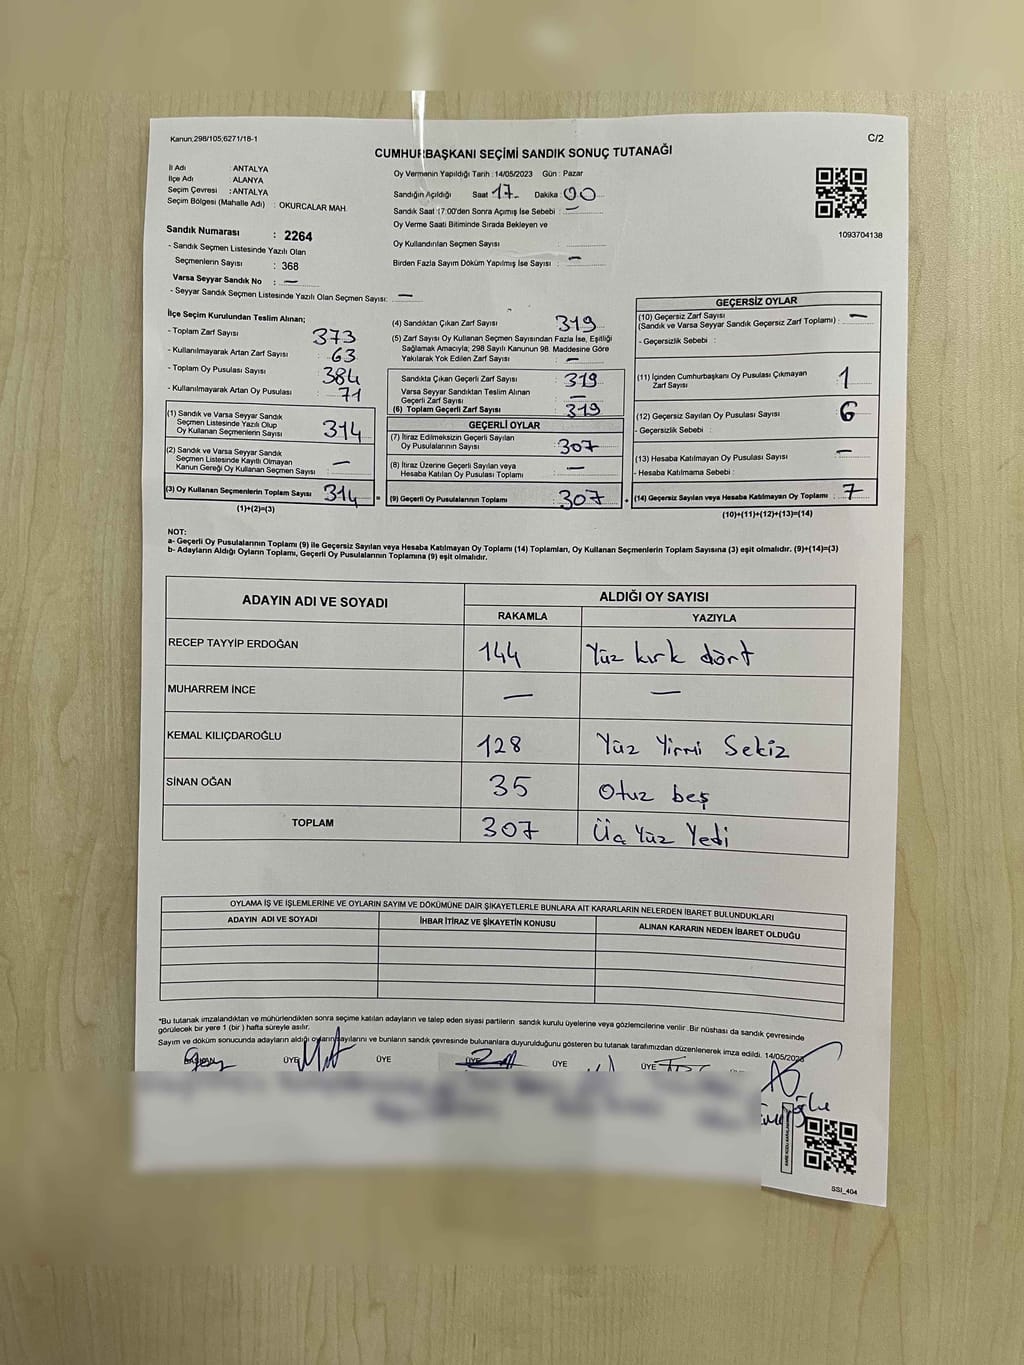 Kanun.298/105;6271/18-1
C/2
CUMHURBAŞKANI SEÇİMİ SANDIK SONUÇ TUTANAĞI
İl Adı : ANTALYA
İlçe Adı : ALANYA
Seçim Çevresi : ANTALYA
Seçim Bölgesi (Mahalle Adı) : OKURCALAR MAH.
Oy Vermenin Yapıldığı Tarih :14/05/2023 Gün : Pazar
Sandığın Açıldığı Saat 17 Dakika 00
Sandık Saat 17:00'den Sonra Açımış İse Sebebi : —
Oy Verme Saati Bitiminde Sırada Bekleyen ve
Oy Kullandırılan Seçmen Sayısı :
Birden Fazla Sayım Döküm Yapılmış İse Sayısı : —
1093704138
Sandık Numarası : 2264
- Sandık Seçmen Listesinde Yazılı Olan
Seçmenlerin Sayısı : 368
Varsa Seyyar Sandık No : —
- Seyyar Sandık Seçmen Listesinde Yazılı Olan Seçmen Sayısı: —
İlçe Seçim Kurulundan Teslim Alınan;
- Toplam Zarf Sayısı : 373
- Kullanılmayarak Artan Zarf Sayısı : 63
- Toplam Oy Pusulası Sayısı : 384
- Kullanılmayarak Artan Oy Pusulası : 71
(1) Sandık ve Varsa Seyyar Sandık
Seçmen Listesinde Yazılı Olup
Oy Kullanan Seçmenlerin Sayısı : 314
(2) Sandık ve Varsa Seyyar Sandık
Seçmen Listesinde Kayıtlı Olmayan
Kanun Gereği Oy Kullanan Seçmen Sayısı : —
(3) Oy Kullanan Seçmenlerin Toplam Sayısı 314 =
(1)+(2)=(3)
(4) Sandıktan Çıkan Zarf Sayısı : 319
(5) Zarf Sayısı Oy Kullanan Seçmen Sayısından Fazla İse, Eşitliği
Sağlamak Amacıyla; 298 Sayılı Kanunun 98. Maddesine Göre
Yakılarak Yok Edilen Zarf Sayısı : —
Sandıkta Çıkan Geçerli Zarf Sayısı : 319
Varsa Seyyar Sandıktan Teslim Alınan
Geçerli Zarf Sayısı : —
(6) Toplam Geçerli Zarf Sayısı : 319
GEÇERLİ OYLAR
(7) İtiraz Edilmeksizin Geçerli Sayılan
Oy Pusulalarının Sayısı : 307
(8) İtiraz Üzerine Geçerli Sayılan veya
Hesaba Katılan Oy Pusulası Toplamı : —
(9) Geçerli Oy Pusulalarının Toplamı : 307 +
GEÇERSİZ OYLAR
(10) Geçersiz Zarf Sayısı
(Sandık ve Varsa Seyyar Sandık Geçersiz Zarf Toplamı) : —
- Geçersizlik Sebebi :
(11) İçinden Cumhurbaşkanı Oy Pusulası Çıkmayan
Zarf Sayısı : 1
(12) Geçersiz Sayılan Oy Pusulası Sayısı : 6
- Geçersizlik Sebebi :
(13) Hesaba Katılmayan Oy Pusulası Sayısı : —
- Hesaba Katılmama Sebebi :
(14) Geçersiz Sayılan veya Hesaba Katılmayan Oy Toplamı : 7
(10)+(11)+(12)+(13)=(14)
NOT:
a- Geçerli Oy Pusulalarının Toplamı (9) ile Geçersiz Sayılan veya Hesaba Katılmayan Oy Toplamı (14) Toplamları, Oy Kullanan Seçmenlerin Toplam Sayısına (3) eşit olmalıdır. (9)+(14)=(3)
b- Adayların Aldığı Oyların Toplamı, Geçerli Oy Pusulalarının Toplamına (9) eşit olmalıdır.
ADAYIN ADI VE SOYADI
ALDIĞI OY SAYISI
RAKAMLA YAZIYLA
RECEP TAYYİP ERDOĞAN 144 Yüz kırk dört
MUHARREM İNCE — —
KEMAL KILIÇDAROĞLU 128 Yüz Yirmi Sekiz
SİNAN OĞAN 35 Otuz beş
TOPLAM 307 Üç Yüz Yedi
OYLAMA İŞ VE İŞLEMLERİNE VE OYLARIN SAYIM VE DÖKÜMÜNE DAİR ŞİKAYETLERLE BUNLARA AİT KARARLARIN NELERDEN İBARET BULUNDUKLARI
ADAYIN ADI VE SOYADI İHBAR İTİRAZ VE ŞİKAYETİN KONUSU ALINAN KARARIN NEDEN İBARET OLDUĞU
*Bu tutanak imzalandıktan ve mühürlendikten sonra seçime katılan adayların ve talep eden siyasi partilerin sandık kurulu üyelerine veya gözlemcilerine verilir. Bir nüshası da sandık çevresinde
görülecek bir yere 1 (bir) hafta süreyle asılır.
Sayım ve döküm sonucunda adayların aldığı oyların sayılarını ve bunların sandık çevresinde bulunanlara duyurulduğunu gösteren bu tutanak tarafımızdan düzenlenerek imza edildi. 14/05/2023
BAŞKAN ÜYE ÜYE ÜYE ÜYE ÜYE
SSI_404